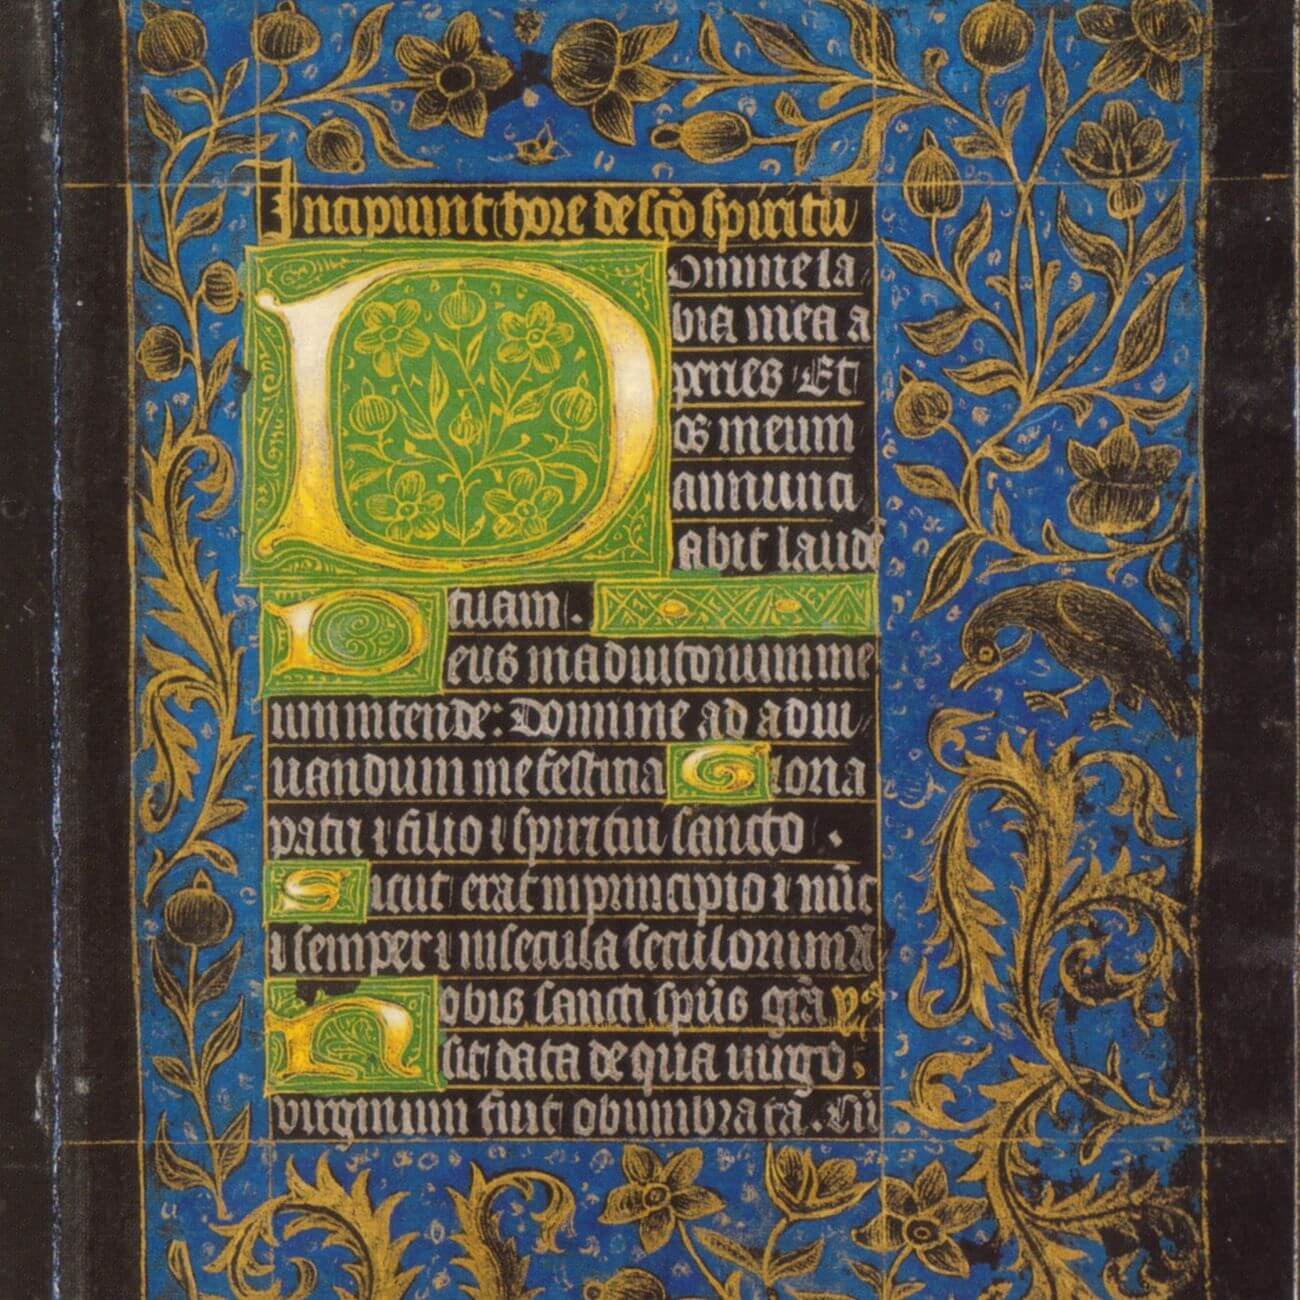 Incipiunt hore de sc̃o spiritu
Domine la
bia mea a
peries Et
os meum
annunci
abit laudẽ
tuam.
Deus in adiutorium me
um intende: Domine ad adiu
uandum me festina Gloria
patri ⁊ filio ⁊ spiritui sancto.
Sicut erat in principio ⁊ nũc
⁊ semper ⁊ in secula seculorum A
Nobis sancti sp̃us gr̃a ỹ
sit data de qua uirgo
virginum fuit obumbrata. Cũ